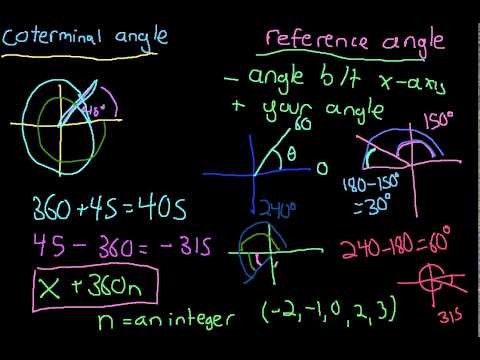 coterminal angle
45°
360+45=405
45-360=-315
x+360n
n=an integer (-2,-1,0,2,3)
reference angle
- angle b/t x-axis
+ your angle
60
θ
0
150°
180-150°
=30°
240°
240-180=60°
315